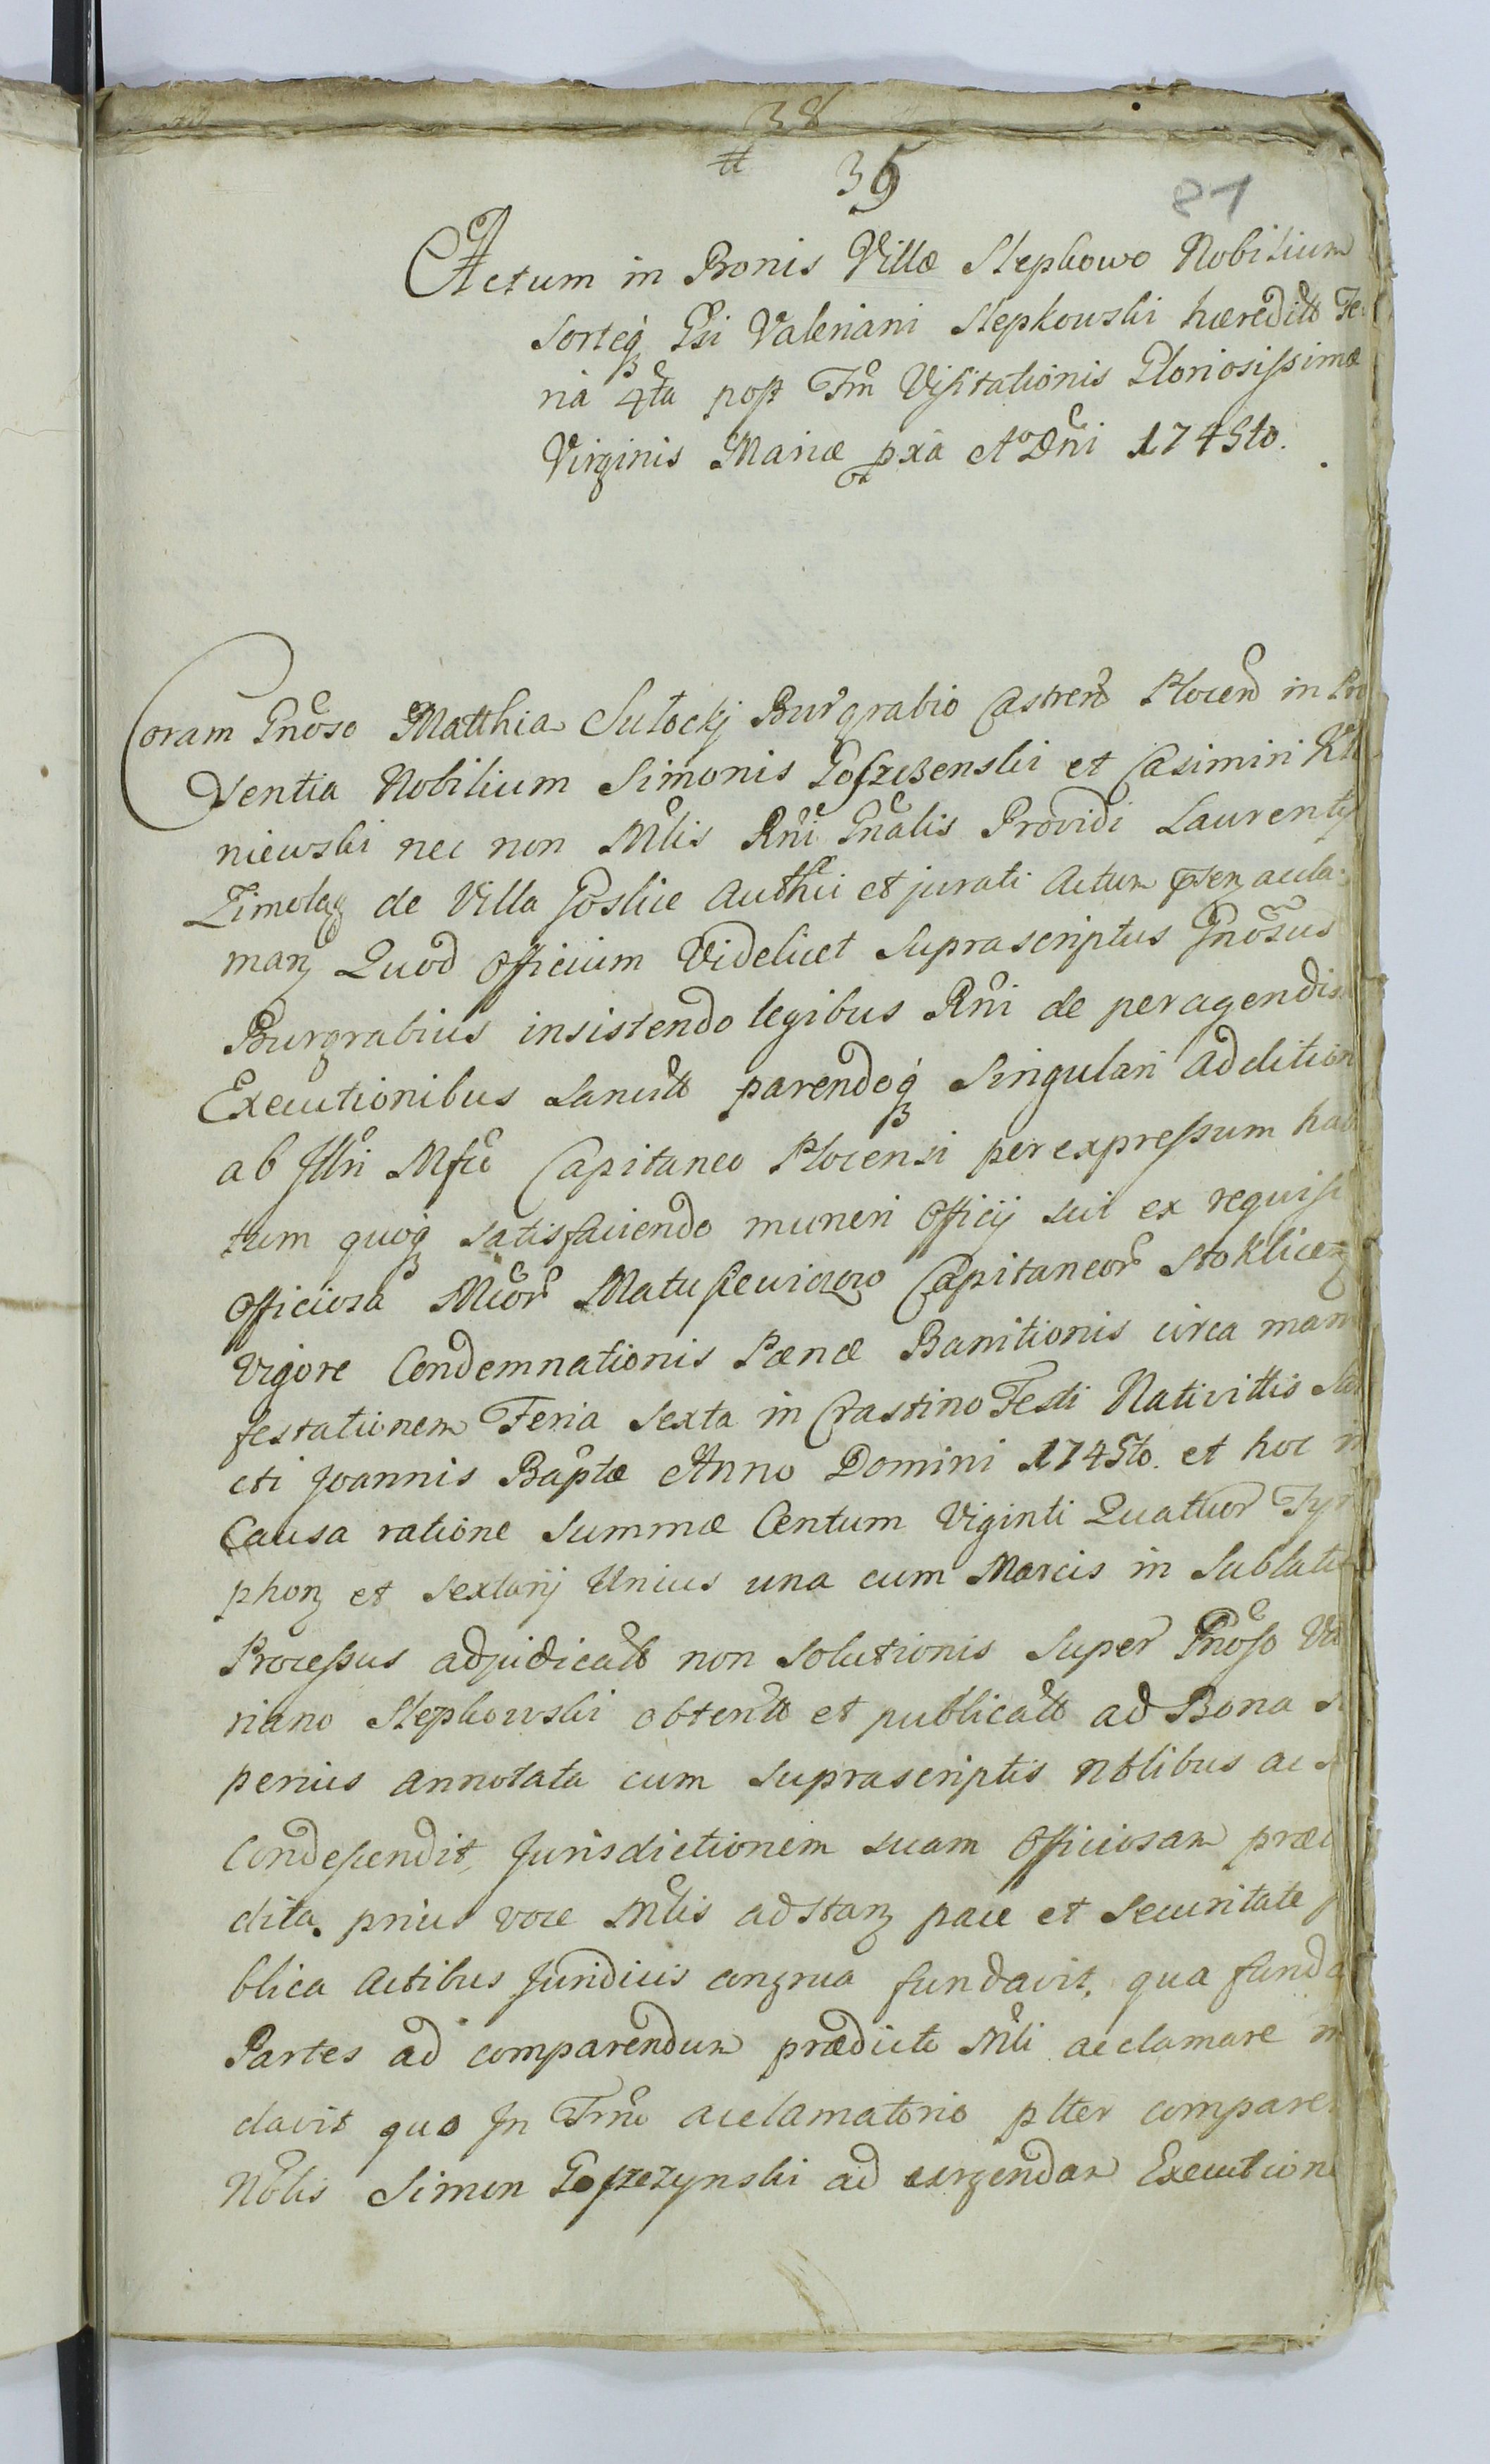 38
# 35
81
Actum in Bonis Villæ Slepkowo Nobilium
Sorteq3 Gsi Valeriani Slepkowski hæredit Fe
ria 4ta post Fm Visitationis Gloriosissimæ
Virginis Mariæ pxa Ao Dni 1745to.
Coram Gnoso Matthia Sutockj Burgrabio Castren Plocen in Præ
sentia Nobilium Simonis et Casimiri
niewski nec non Mtlis Rni Gnalis Providi Laurentij
de Villa Goslice Authci et jurati Actum acla
man Quod Officium Videlicet Suprascriptus Gnosus
Burgrabius insistendo legibus Rni de peragendis
Executionibus Sancitt parendoq3 Singulari addition
ab Illri Mfco Capitaneo Plocensi per expressum hab
tum quoq3 satisfaciendo muneri Officij sui ex requisi
Officiosa Mcor Capitaneor
Vigore Condemnationis Pænæ Banitionis circa man
festationem Feria Sexta in Crastino Festi Nativittis San
cti Joannis Baptæ Anno Domini 1745to. et hoc in
Causa ratione Summæ Centum Viginti Quattuor Tym
phon et Sextarij Unius una cum Marcis in Sublati
Processus adjudicatt non Solutionis Super Gnoso Val
riano Slepkowski obtentt et publicatt ad Bona s
perius annotata cum Suprascriptis Nblibus ac
Condescendit, Jurisdictionem suam Officiosam præ
dita prius voce Mtlis adstan pace et Securitate p
blica Actibus Juridicis congrua fundavit, qua funda
Partes ad comparendum prædicto Mtli acclamare m
davit quo In Trno acclamatorio plter compare
Nblis Simon ad urgendam Execution